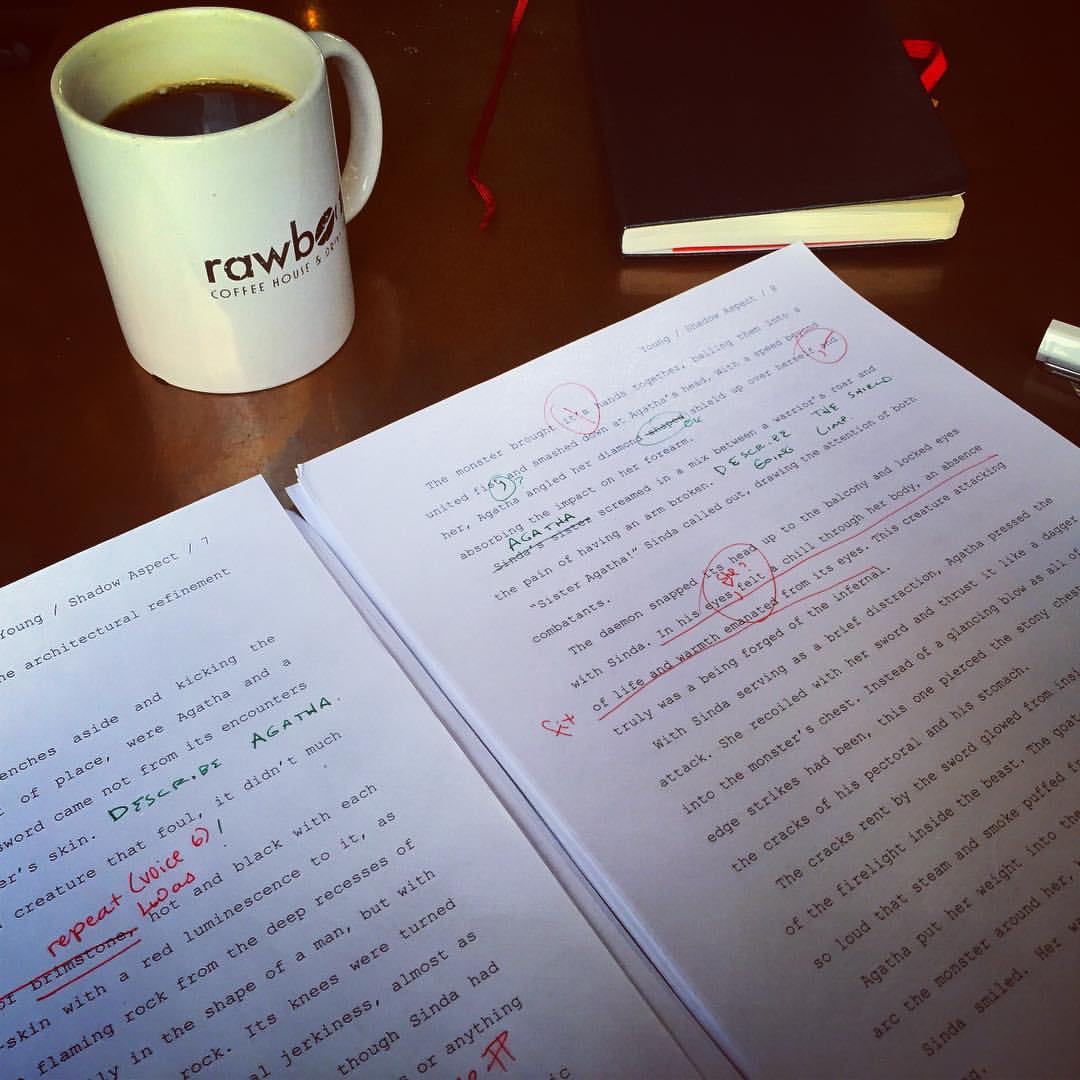 rawbo
COFFEE HOUSE &
Young / Shadow Aspect / 7
architectural refinement
aside and kicking the
of place, were Agatha and a
sword came not from its encounters
skin. DESCRIBE AGATHA.
creature that foul, it didn't much
repeat (voice 6) !
was
brimstone, hot and black with each
-skin with a red luminescence to it, as
flaming rock from the deep recesses of
in the shape of a man, but with
rock. Its knees were turned
jerkiness, almost as
though Sinda had
or anything
Young / Shadow Aspect / 8
The monster brought it's hands together, balling them into a
united fist, and smashed down at Agatha's head, with a speed beyond
her, Agatha angled her diamond shaped shield up over herself, and
OK
absorbing the impact on her forearm.
AGATHA
Sinda's sister screamed in a mix between a warrior's roar and
the pain of having an arm broken. DESCRIBE THE SHIELD
GOING LIMP
"Sister Agatha!" Sinda called out, drawing the attention of both
combatants.
The daemon snapped its head up to the balcony and locked eyes
with Sinda. In his eyes felt a chill through her body, an absence
of life and warmth emanated from its eyes. This creature attacking
fix
truly was a being forged of the infernal.
With Sinda serving as a brief distraction, Agatha pressed the
attack. She recoiled with her sword and thrust it like a dagger
into the monster's chest. Instead of a glancing blow as all of
edge strikes had been, this one pierced the stony chest
the cracks of his pectoral and his stomach.
The cracks rent by the sword glowed from
of the firelight inside the beast. The
so loud that steam and smoke puffed
Agatha put her weight into the
arc the monster around her,
Sinda smiled. Her